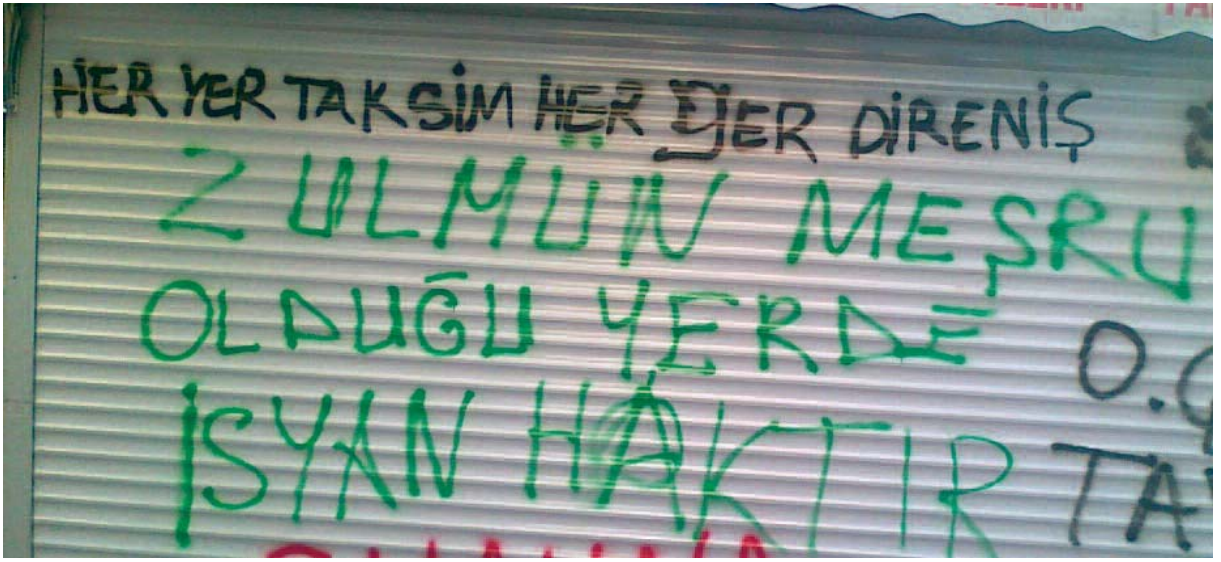 HER YER TAKSİM HER YER DİRENİŞ
ZULMÜN MEŞRU
OLDUĞU YERDE
İSYAN HAKTIR